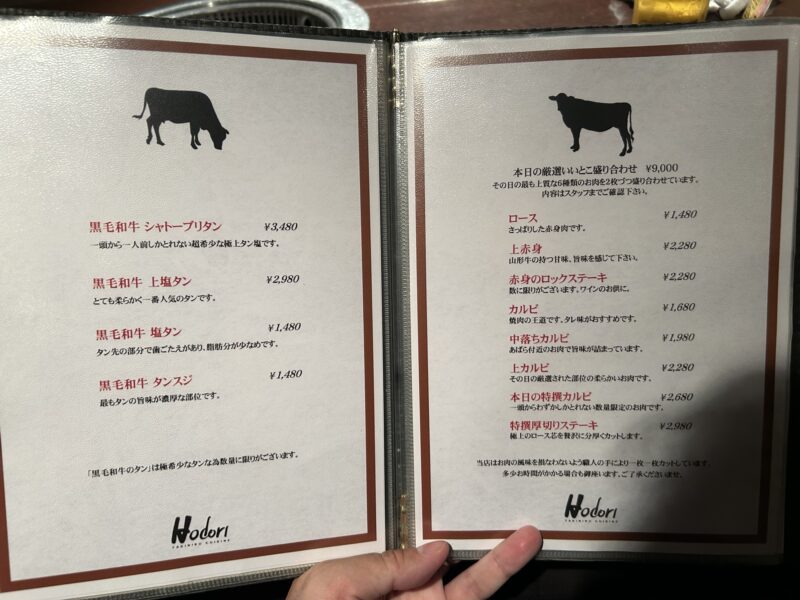 黒毛和牛 シャトーブリタン ¥3,480
一頭から一人前しかとれない超希少な極上タン塩です。
黒毛和牛 上塩タン ¥2,980
とても柔らかく一番人気のタンです。
黒毛和牛 塩タン ¥1,480
タン先の部分で歯ごたえがあり、脂肪分が少なめです。
黒毛和牛 タンスジ ¥1,480
最もタンの旨味が濃厚な部位です。
「黒毛和牛のタン」は極希少なタンな為数量に限りがございます。
Hodori
YAKINIKU CUISINE
本日の厳選いいとこ盛り合わせ ¥9,000
その日の最も上質な6種類のお肉を2枚づつ盛り合わせています。
内容はスタッフまでご確認下さい。
ロース ¥1,480
さっぱりした赤身肉です。
上赤身 ¥2,280
山形牛の持つ甘味、旨味を感じて下さい。
赤身のロックステーキ ¥2,280
数に限りがございます。ワインのお供に。
カルビ ¥1,680
焼肉の王道です。タレ味がおすすめです。
中落ちカルビ ¥1,980
あばら付近のお肉で旨味が詰まっています。
上カルビ ¥2,280
その日の厳選された部位の柔らかいお肉です。
本日の特撰カルビ ¥2,680
一頭からわずかしかとれない数量限定のお肉です。
特撰厚切りステーキ ¥2,980
極上のロース芯を贅沢に分厚くカットします。
当店はお肉の風味を損なわないよう職人の手により一枚一枚カットしています。
多少お時間がかかる場合も御座います。ご了承くださいませ。
Hodori
YAKINIKU CUISINE